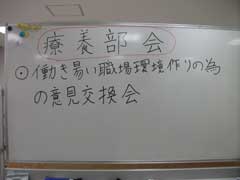 療養部会
⊙働き易い職場環境作りの為
の意見交換会